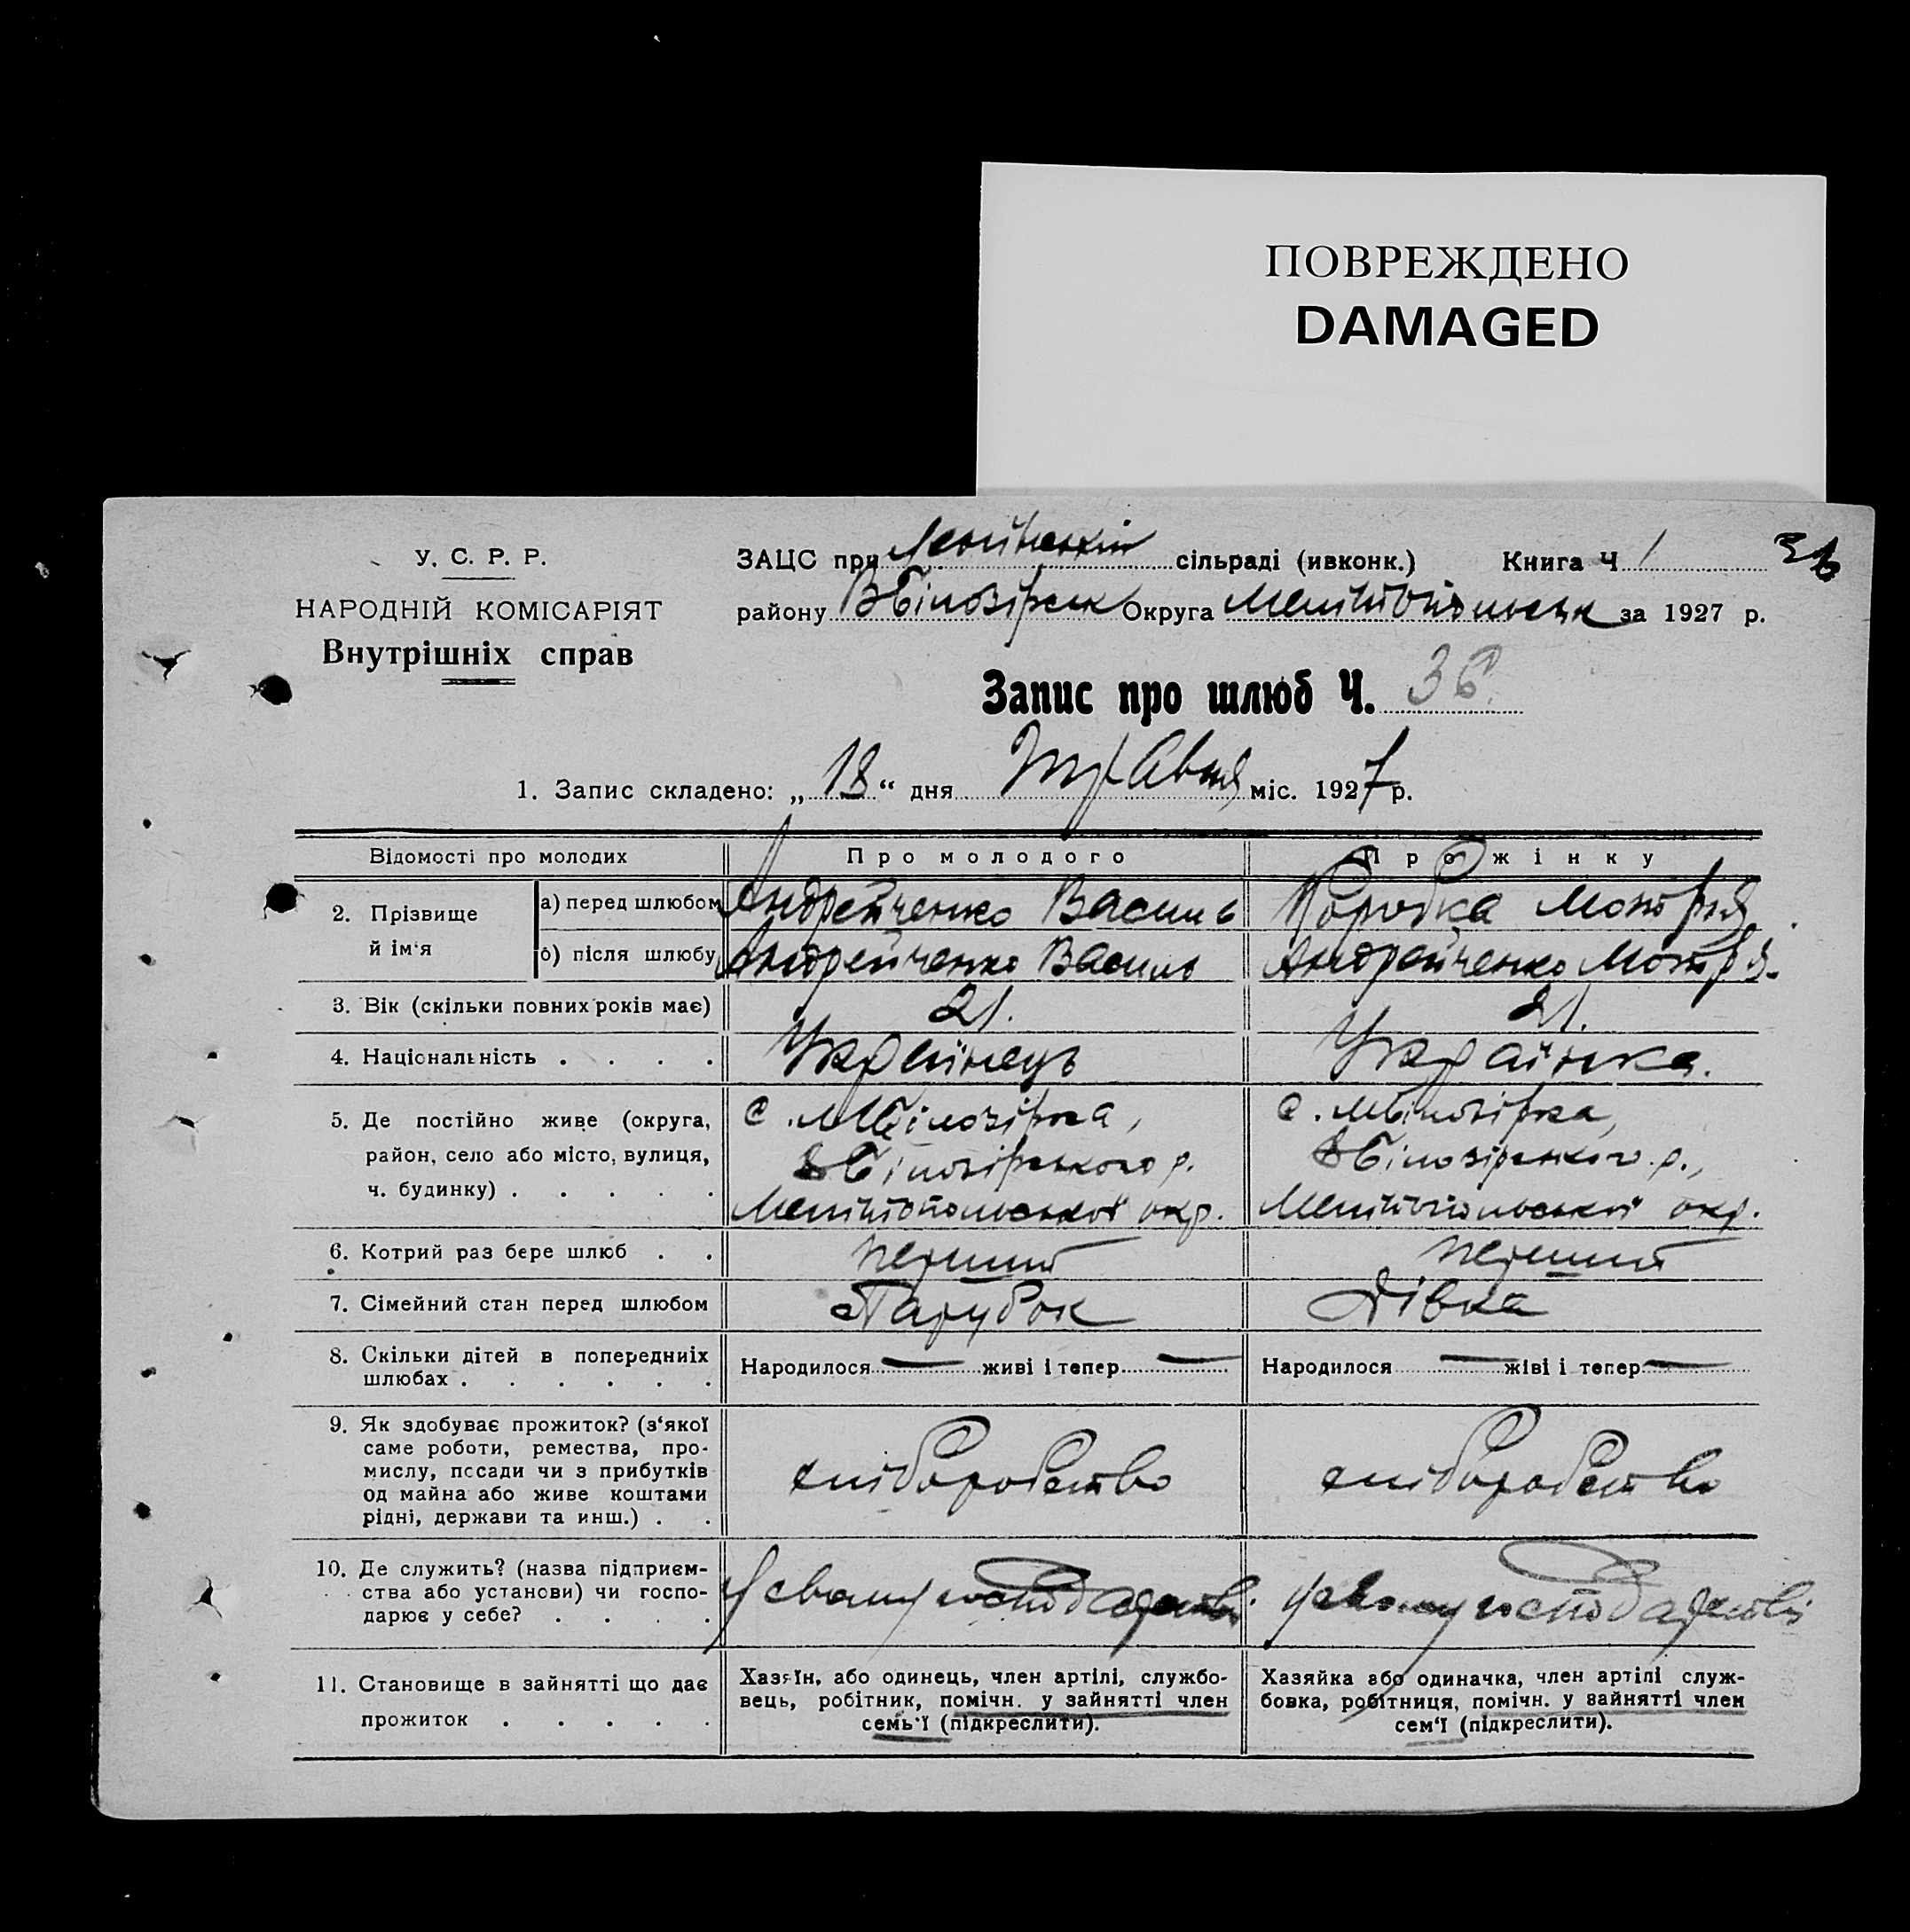 ПОВРЕЖДЕНО
DAMAGED
У. С. Р. Р.
НАРОДНІЙ КОМІСАРІЯТ
Внутрішніх справ
ЗАЦС при сільраді (ивконк.) Книга Ч 1
36
району ВБілозірськ Округа Мелітопольськ за 1927 р.
Запис про шлюб Ч. 36.
1. Запис складено: „ 18 “ дня Травня міс. 1927 р.
Відомості про молодих
Про молодого
Про жінку
2. Прізвище й ім‘я
а) перед шлюбом
Андрейченко Василь
Коробка Мотря
б) після шлюбу
Андрейченко Василь
Андрейченко Мотря.
3. Вік (скільки повних років має)
21.
21.
4. Національність . . . .
Українець
Українка.
5. Де постійно живе (округа,
район, село або місто, вулиця,
ч. будинку) . . . . .
с. МБілозірка,
ВБілозірського р.
Мелітопольської окр.
с. МБілозірка,
ВБілозірського р.,
Мелітопольської окр.
6. Котрий раз бере шлюб . .
перший
перший
7. Сімейний стан перед шлюбом
Парубок
Дівка
8. Скільки дітей в попередниіх
шлюбах . . . . . .
Народилося — живі і тепер —
Народилося — жіві і тепер —
9. Як здобуває прожиток? (з‘якої
саме роботи, ремества, про-
мислу, посади чи з прибутків
од майна або живе коштами
рідні, держави та инш.) . .
хліборобство
хліборобство
10. Де служить? (назва підприєм-
ства або установи) чи госпо-
дарює у себе? . . . .
У свому господарстві
у свому господарстві
11. Становище в зайнятті що дає
прожиток . . . . .
Хазяїн, або одинець, член артілі, службо-
вець, робітник, помічн. у зайнятті член
семь‘ї (підкреслити).
Хазяйка або одиначка, член артілі служ-
бовка, робітниця, помічн. у зайнятті член
сем‘ї (підкреслити).